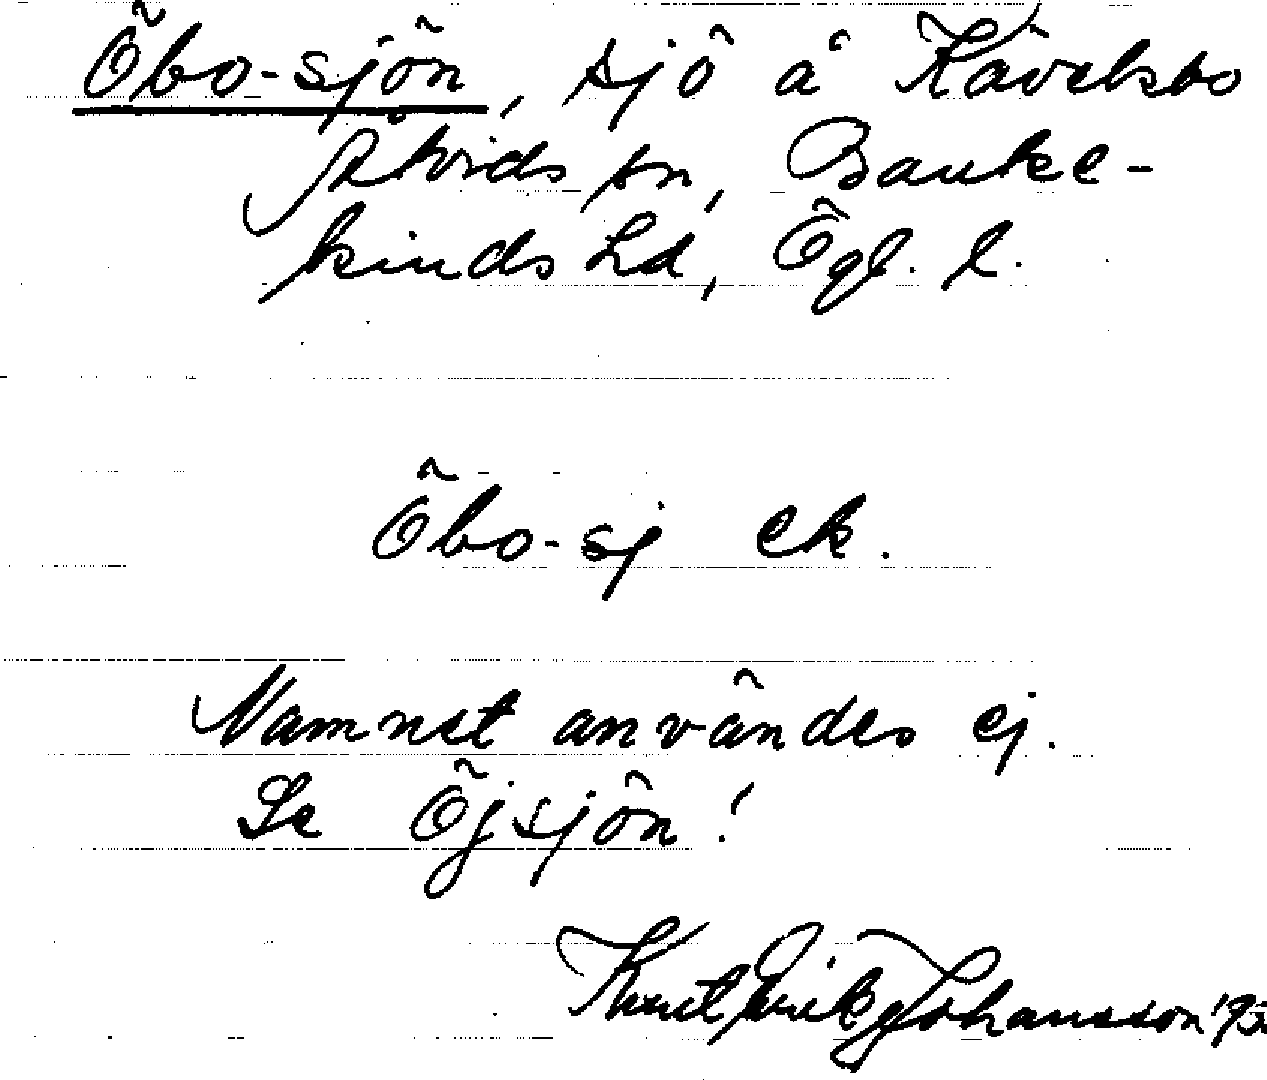 Öbo-sjön, sjö å Kävelsbo
Åtvids sn, Banke-
kinds hd, Ögl. l.
Öbo-sj ek.
Namnet användes ej.
Se Öjsjön!
Knut Erik Johansson